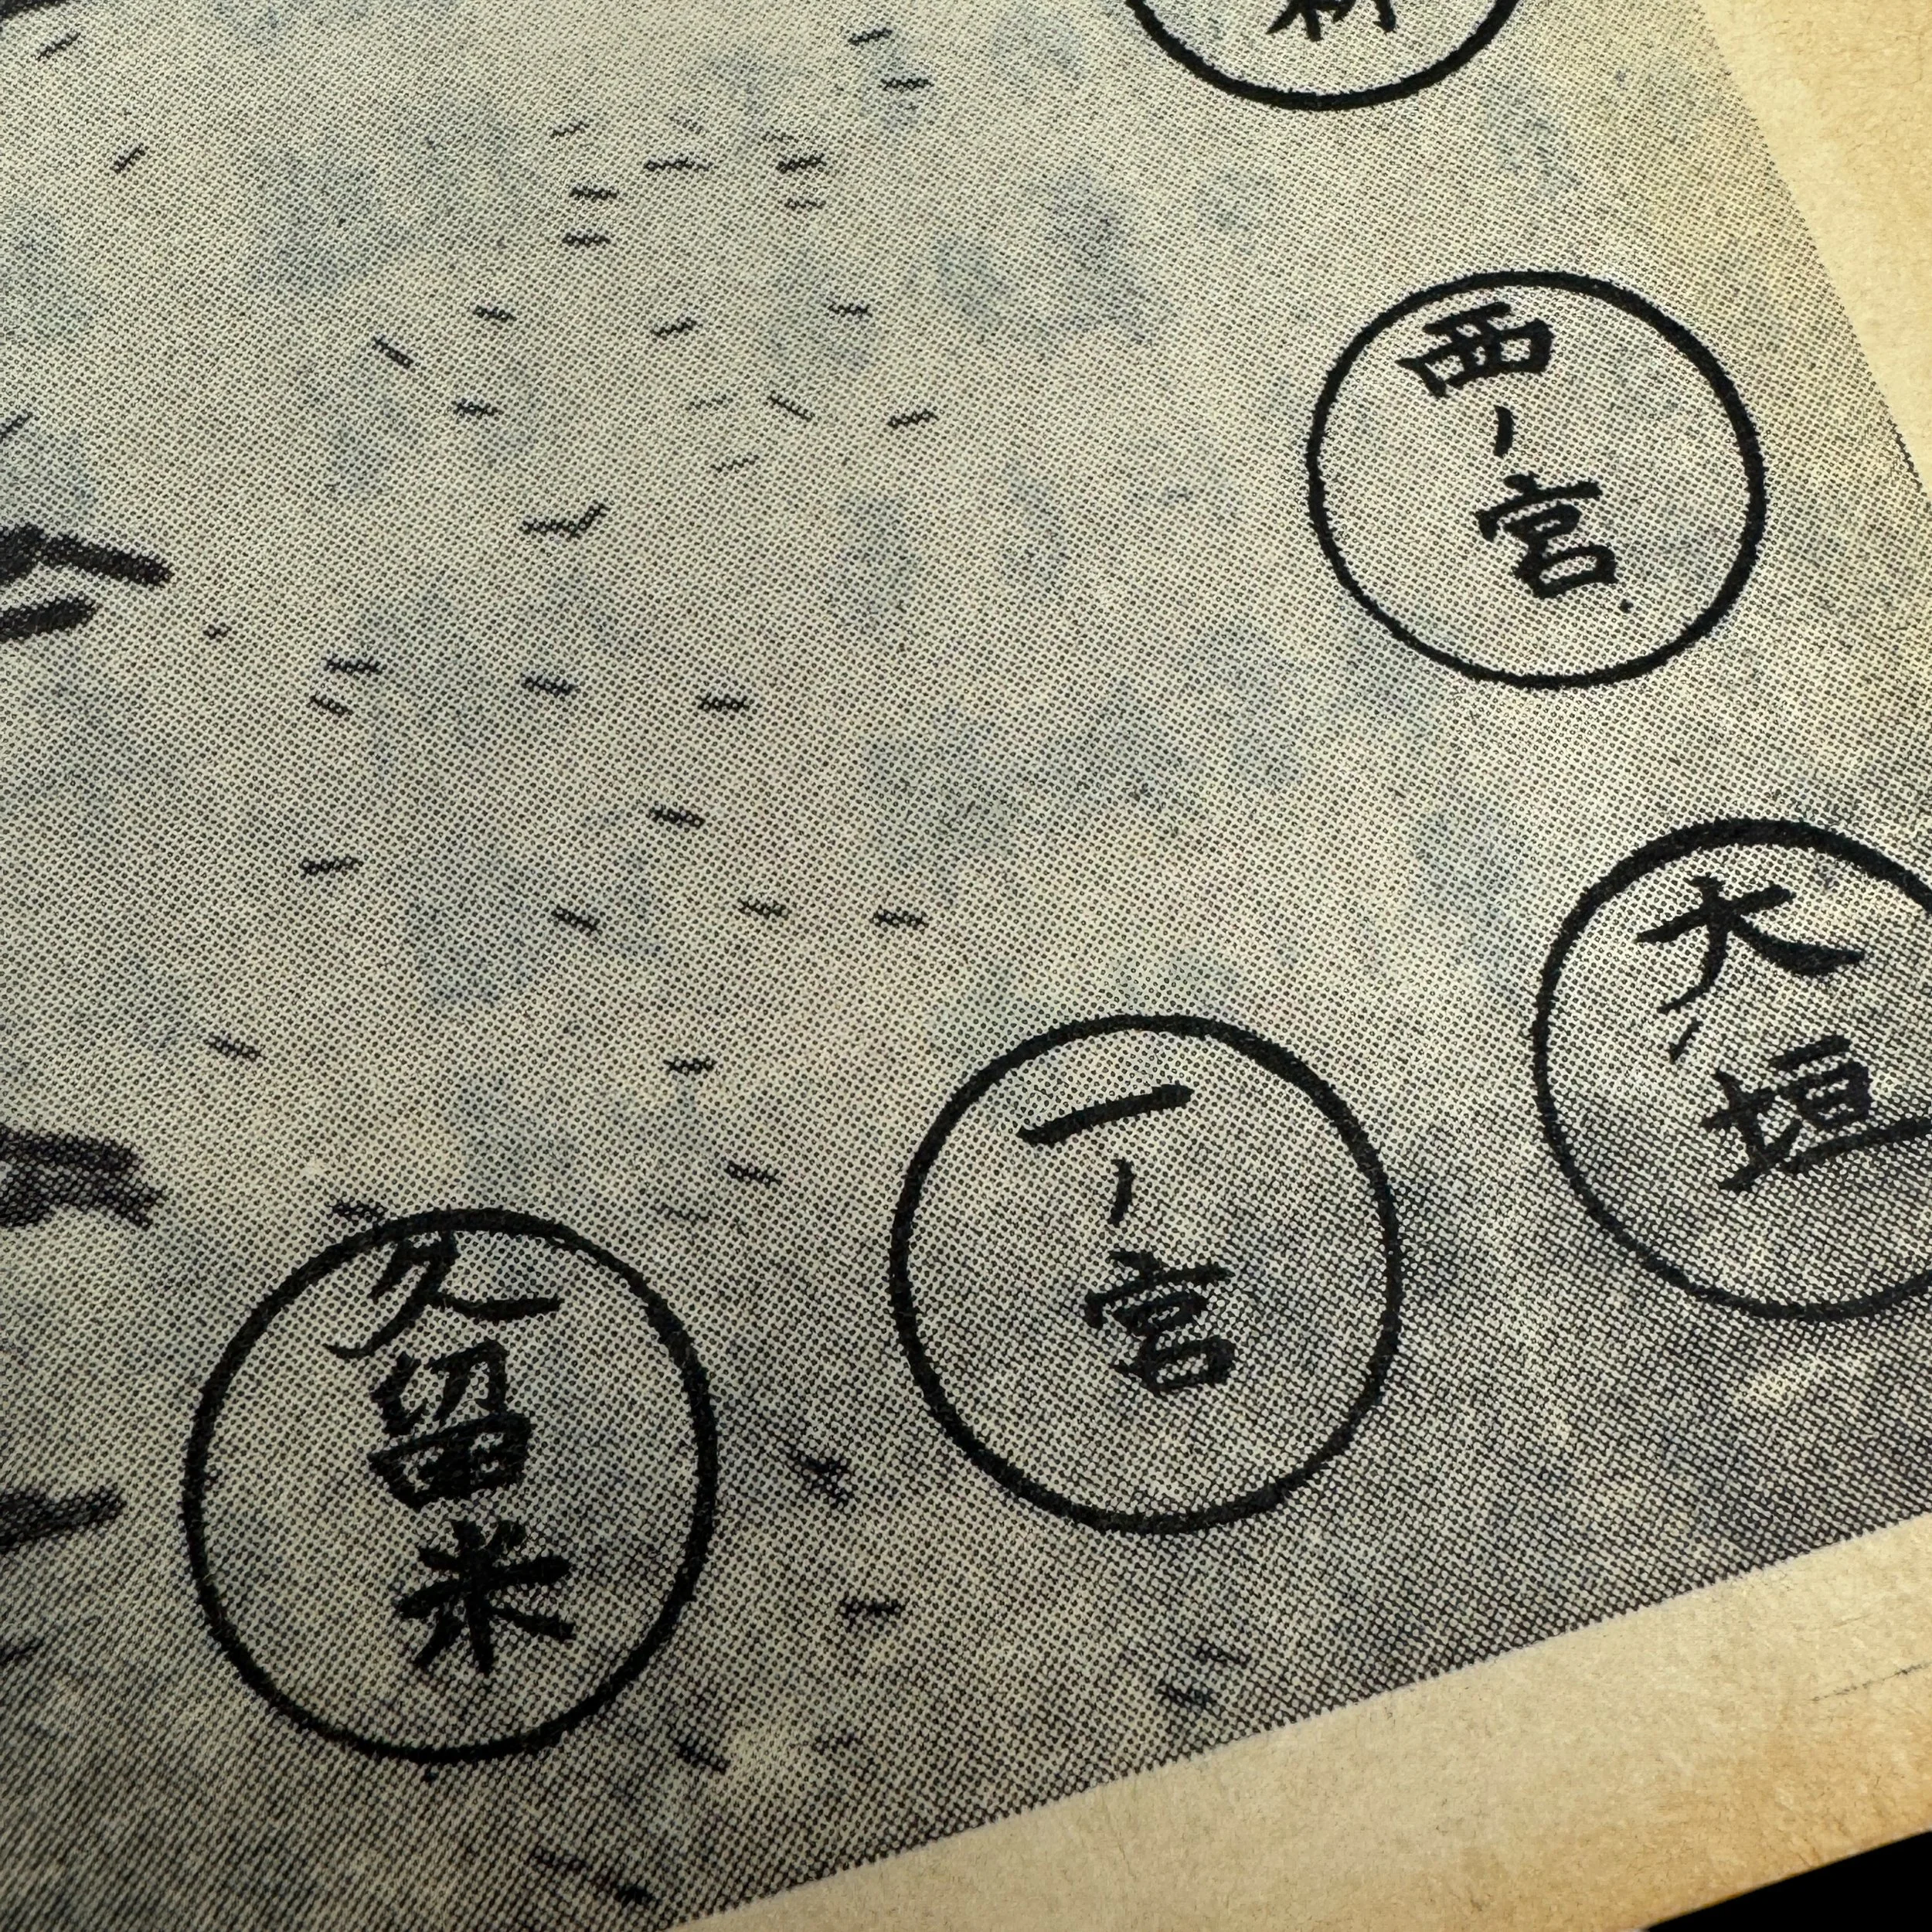 西ノ宮
大垣
一ノ宮
久留米